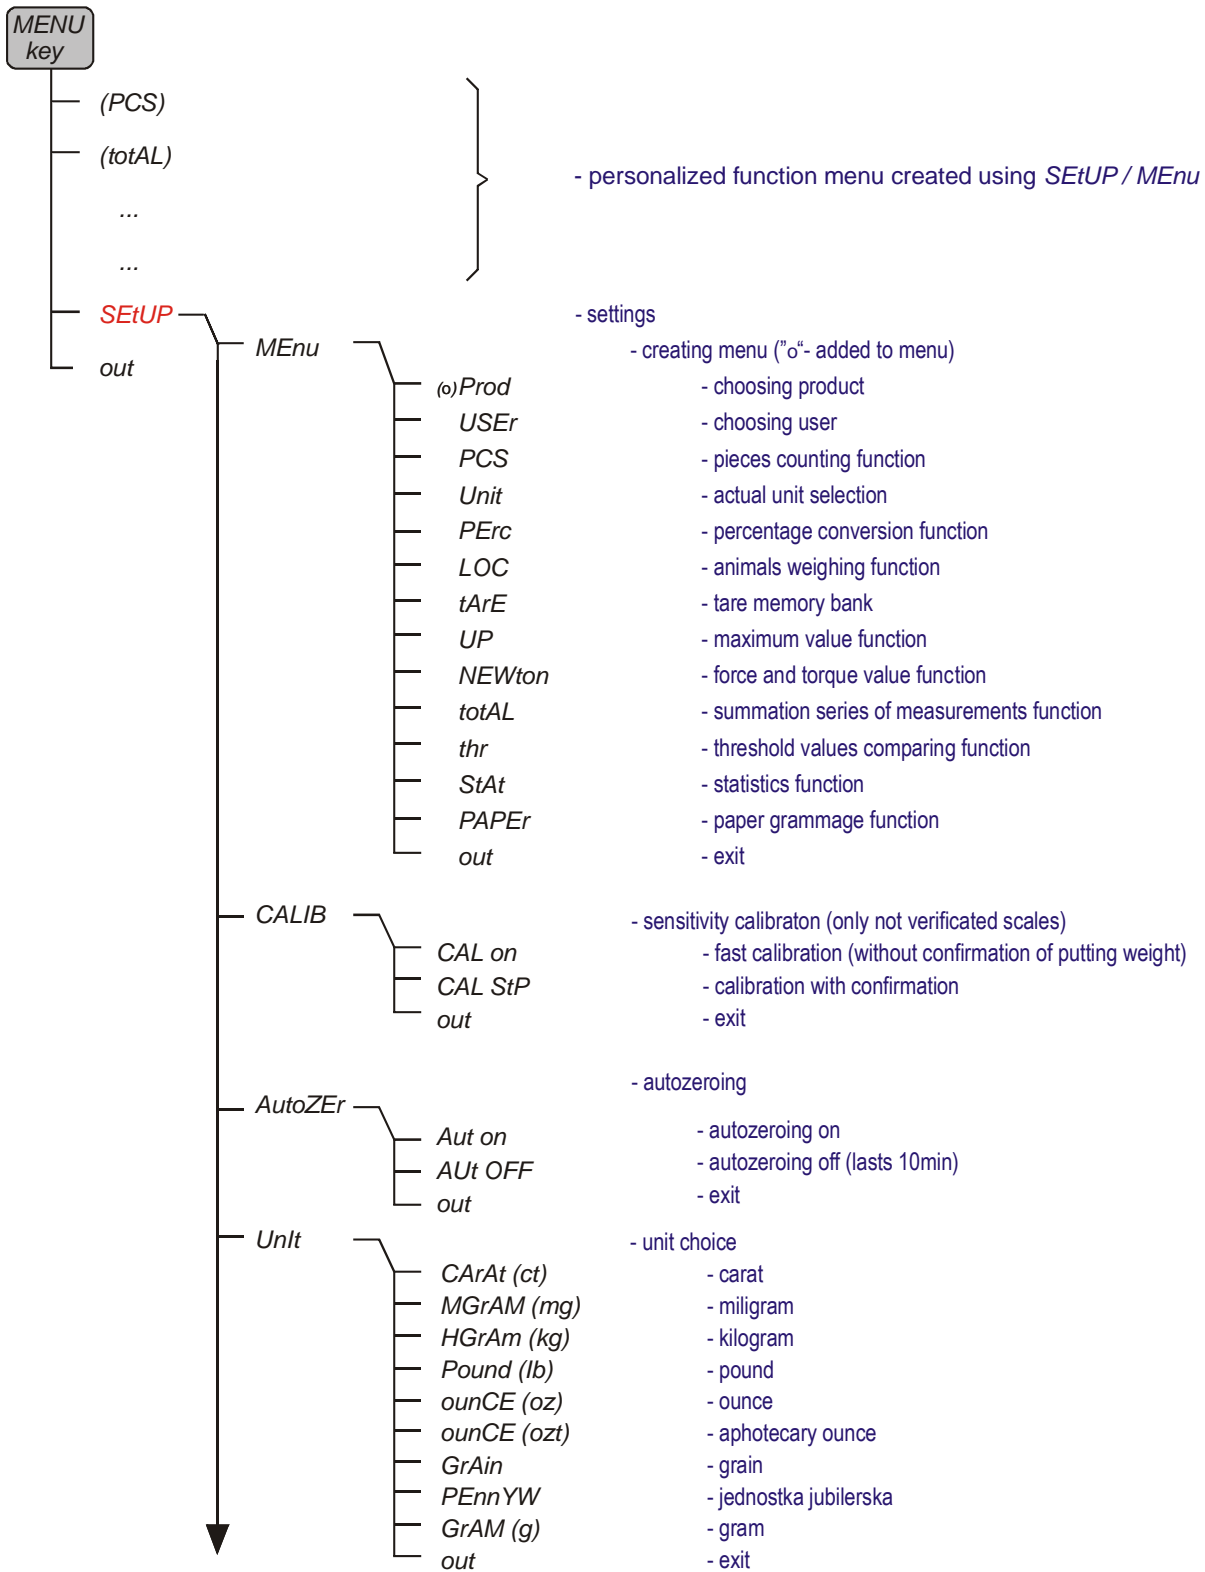 MENU
key
(PCS)
(totAL)
...
- personalized function menu created using SEtUP / MEnu
...
SEtUP - settings
MEnu - creating menu ("o"- added to menu)
out
(o)Prod - choosing product
USEr - choosing user
PCS - pieces counting function
Unit - actual unit selection
PErc - percentage conversion function
LOC - animals weighing function
tArE - tare memory bank
UP - maximum value function
NEWton - force and torque value function
totAL - summation series of measurements function
thr - threshold values comparing function
StAt - statistics function
PAPEr - paper grammage function
out - exit
CALIB - sensitivity calibraton (only not verificated scales)
CAL on - fast calibration (without confirmation of putting weight)
CAL StP - calibration with confirmation
out - exit
AutoZEr - autozeroing
Aut on - autozeroing on
AUt OFF - autozeroing off (lasts 10min)
out - exit
UnIt - unit choice
CArAt (ct) - carat
MGrAM (mg) - miligram
HGrAm (kg) - kilogram
Pound (lb) - pound
ounCE (oz) - ounce
ounCE (ozt) - aphotecary ounce
GrAin - grain
PEnnYW - jednostka jubilerska
GrAM (g) - gram
out - exit